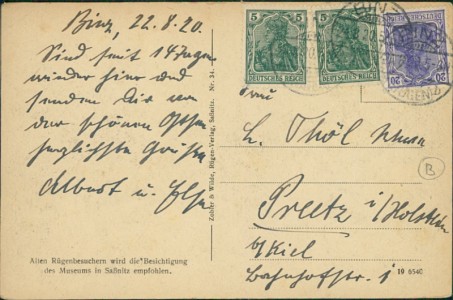 Binz, 22.8.20.
Sind seit 14 Tagen
wieder hier und
senden Dir von
der schönen Ostsee
herzlichste Grüße
Albert u. Else
Zobler & Wilde, Rügen-Verlag, Saßnitz. Nr. 34.
Alten Rügenbesuchern wird die Besichtigung
des Museums in Saßnitz empfohlen.
5 5
DEUTSCHES REICH
5
DEUTSCHES REICH
20 20
Frau
L. Thöl
Preetz i/Holstein
b/Kiel
Bahnhofstr. 1
B
19 6540